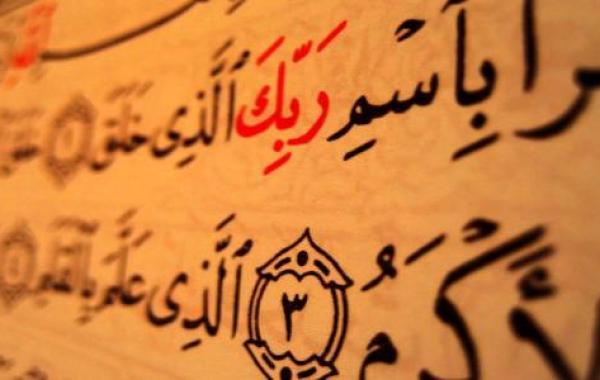 رأ بِٱسْمِ رَبِّكَ ٱلَّذِى خَلَقَ ١ خَلَقَ
لْأَكْرَمُ ٣ ٱلَّذِى عَلَّمَ بِٱلْقَلَمِ ٤